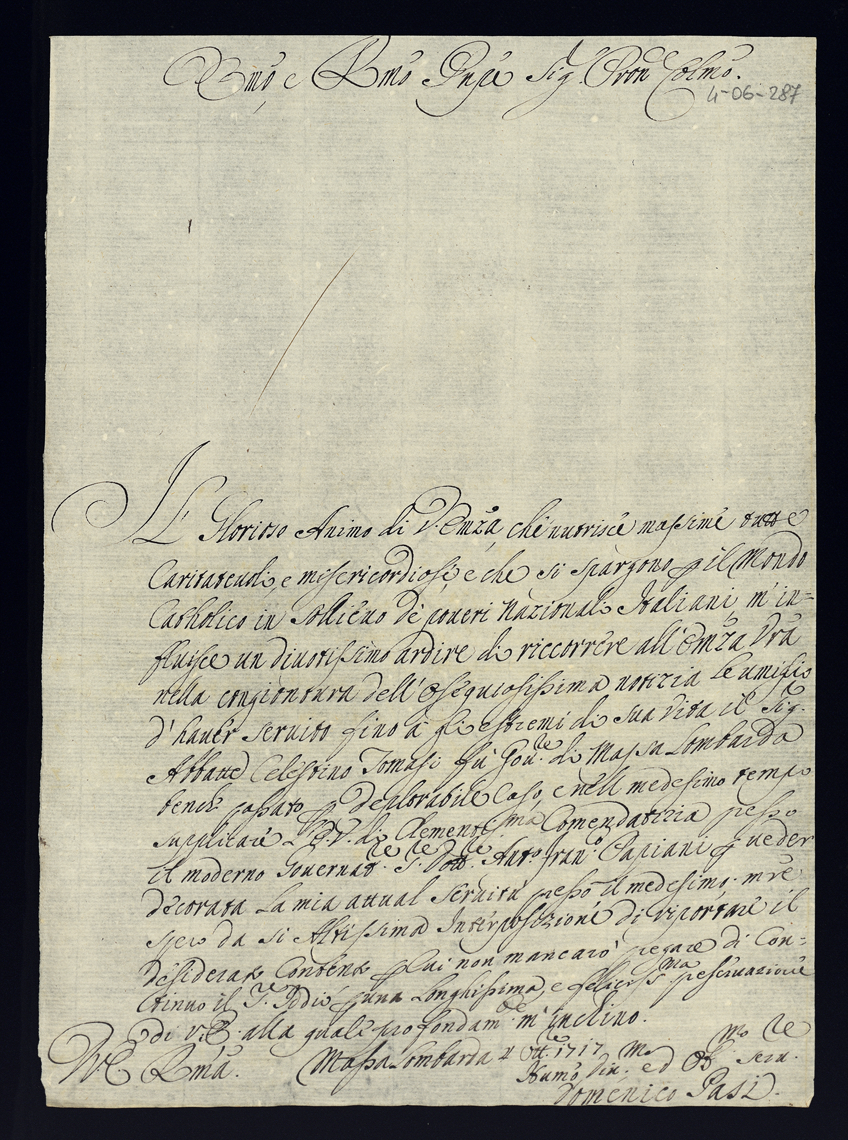 Emo, e Rmo Pnpe Sig. Pron Colmo.
4-06-287
Il Glorioso Animo di V. Emza, che nutrisce massime tutte
Caritatevoli, e misericordiosi, e che si spargono p il Mondo
Catholico in sollievo de poveri Nazionali Italiani m'in=
fluisce un divotissimo ardire di riccorrere all'Emza Vra
nella congiontura dell'ossequiosissima notizia le umilio
d'haver servito fino à gli estremi di sua vita il Sig.
Abbate Celestino Tomasi fu Gov.re di Massa Lombarda
bench passato p deplorabile Caso, e nell medesimo tempo
supplicare L'E.V. di Clementma Comendatizia presso
il moderno Governat.re S. Dott.re Ant. Fran.o Papiani p veder
decorata la mia attual servitù presso il medesimo, mre
spero da si Altissima Interposizione di riportare il
desiderato Contento, p lui non mancarò pregare di Con=
tinuo il S. Iddio p una longhissima, e felicissma preservazione
di V.E. alla quale profondam.te m'inchino.
V.E. Rma. Massa Lombarda 4 Ott.re 1717
Humo Div.mo ed Ob.mo Serv.re
Domenico Pasi